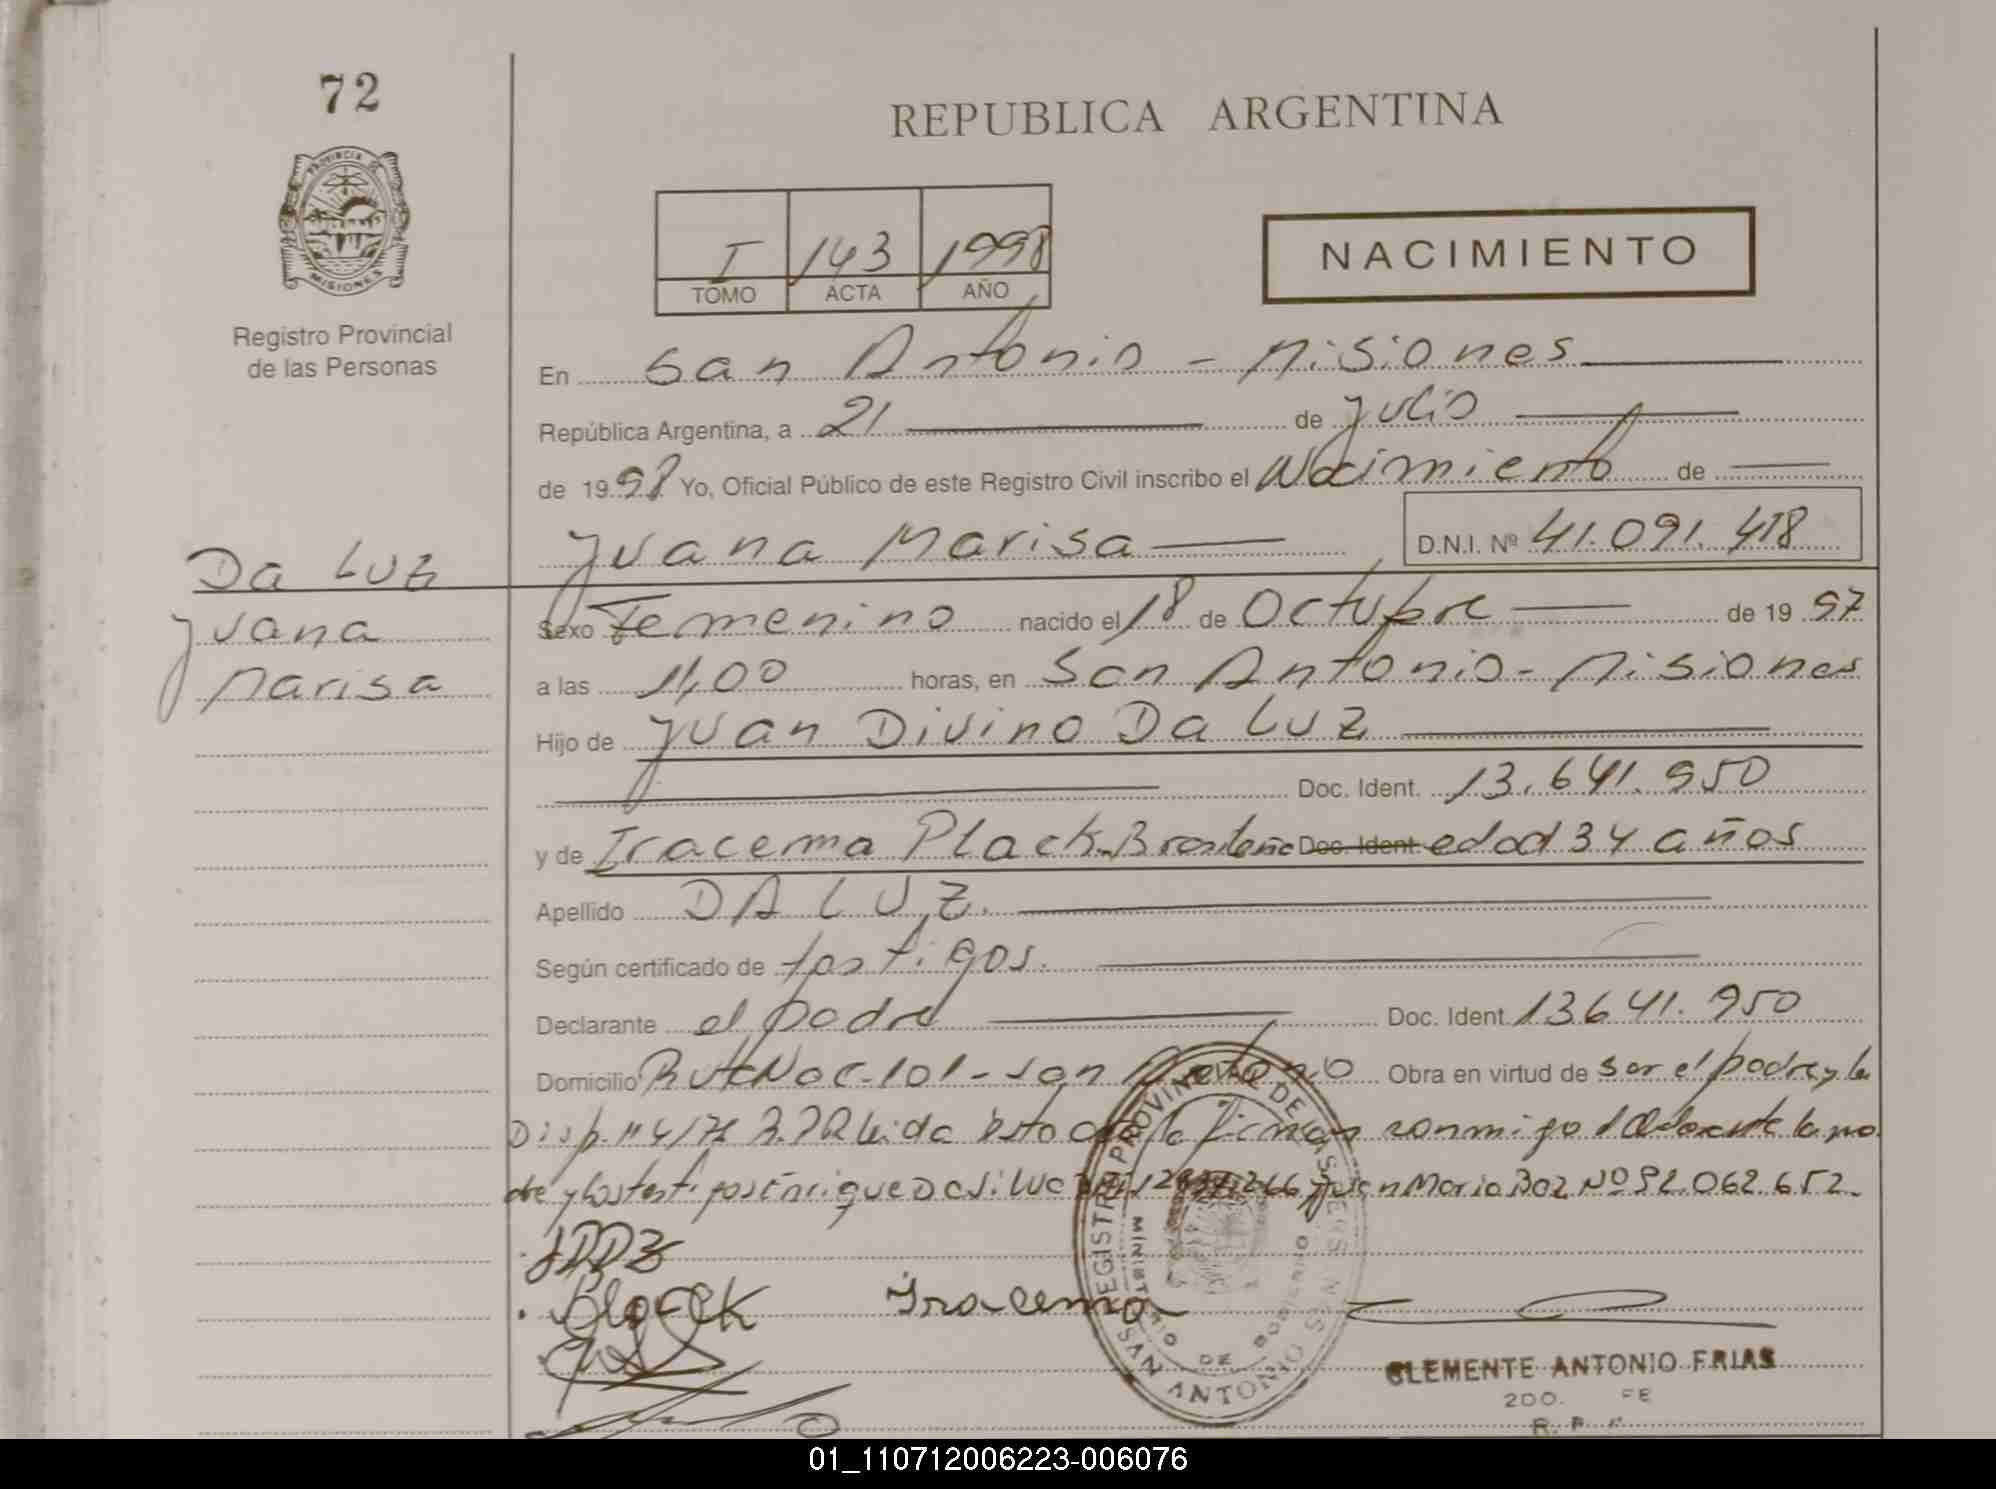 72
REPUBLICA ARGENTINA
PROVINCIA DE
MISIONES
I 143 1998
TOMO ACTA AÑO
NACIMIENTO
Registro Provincial
de las Personas
En San Antonio - Misiones
República Argentina, a 21 de Julio
de 1998 Yo, Oficial Público de este Registro Civil inscribo el Nacimiento de
Juana Marisa D.N.I. Nº 41.091.418
Da Luz
Juana
Marisa
Sexo Femenino nacido el 18 de Octubre de 1997
a las 11,00 horas, en San Antonio - Misiones
Hijo de Juan Divino Da Luz
Doc. Ident. 13.641.950
y de Iracema Plack Brasileña Doc. Ident. edad 34 años
Apellido DA LUZ.
Según certificado de testigos.
Declarante el padre Doc. Ident. 13641.950
Domicilio Ruta Nac-101-San Antonio Obra en virtud de ser el padre y la
Disp. Leida esta acta la firman conmigo el declarante la ma
dre y los testigos Enrique Da Silva y Juan Maria Boz Nº 92.062.652.
Iracema
REGISTRO PROVINCIAL DE LAS PERSONAS
MINISTERIO DE GOBIERNO
SAN ANTONIO MNES
CLEMENTE ANTONIO FRIAS
2DO. FE
01_110712006223-006076